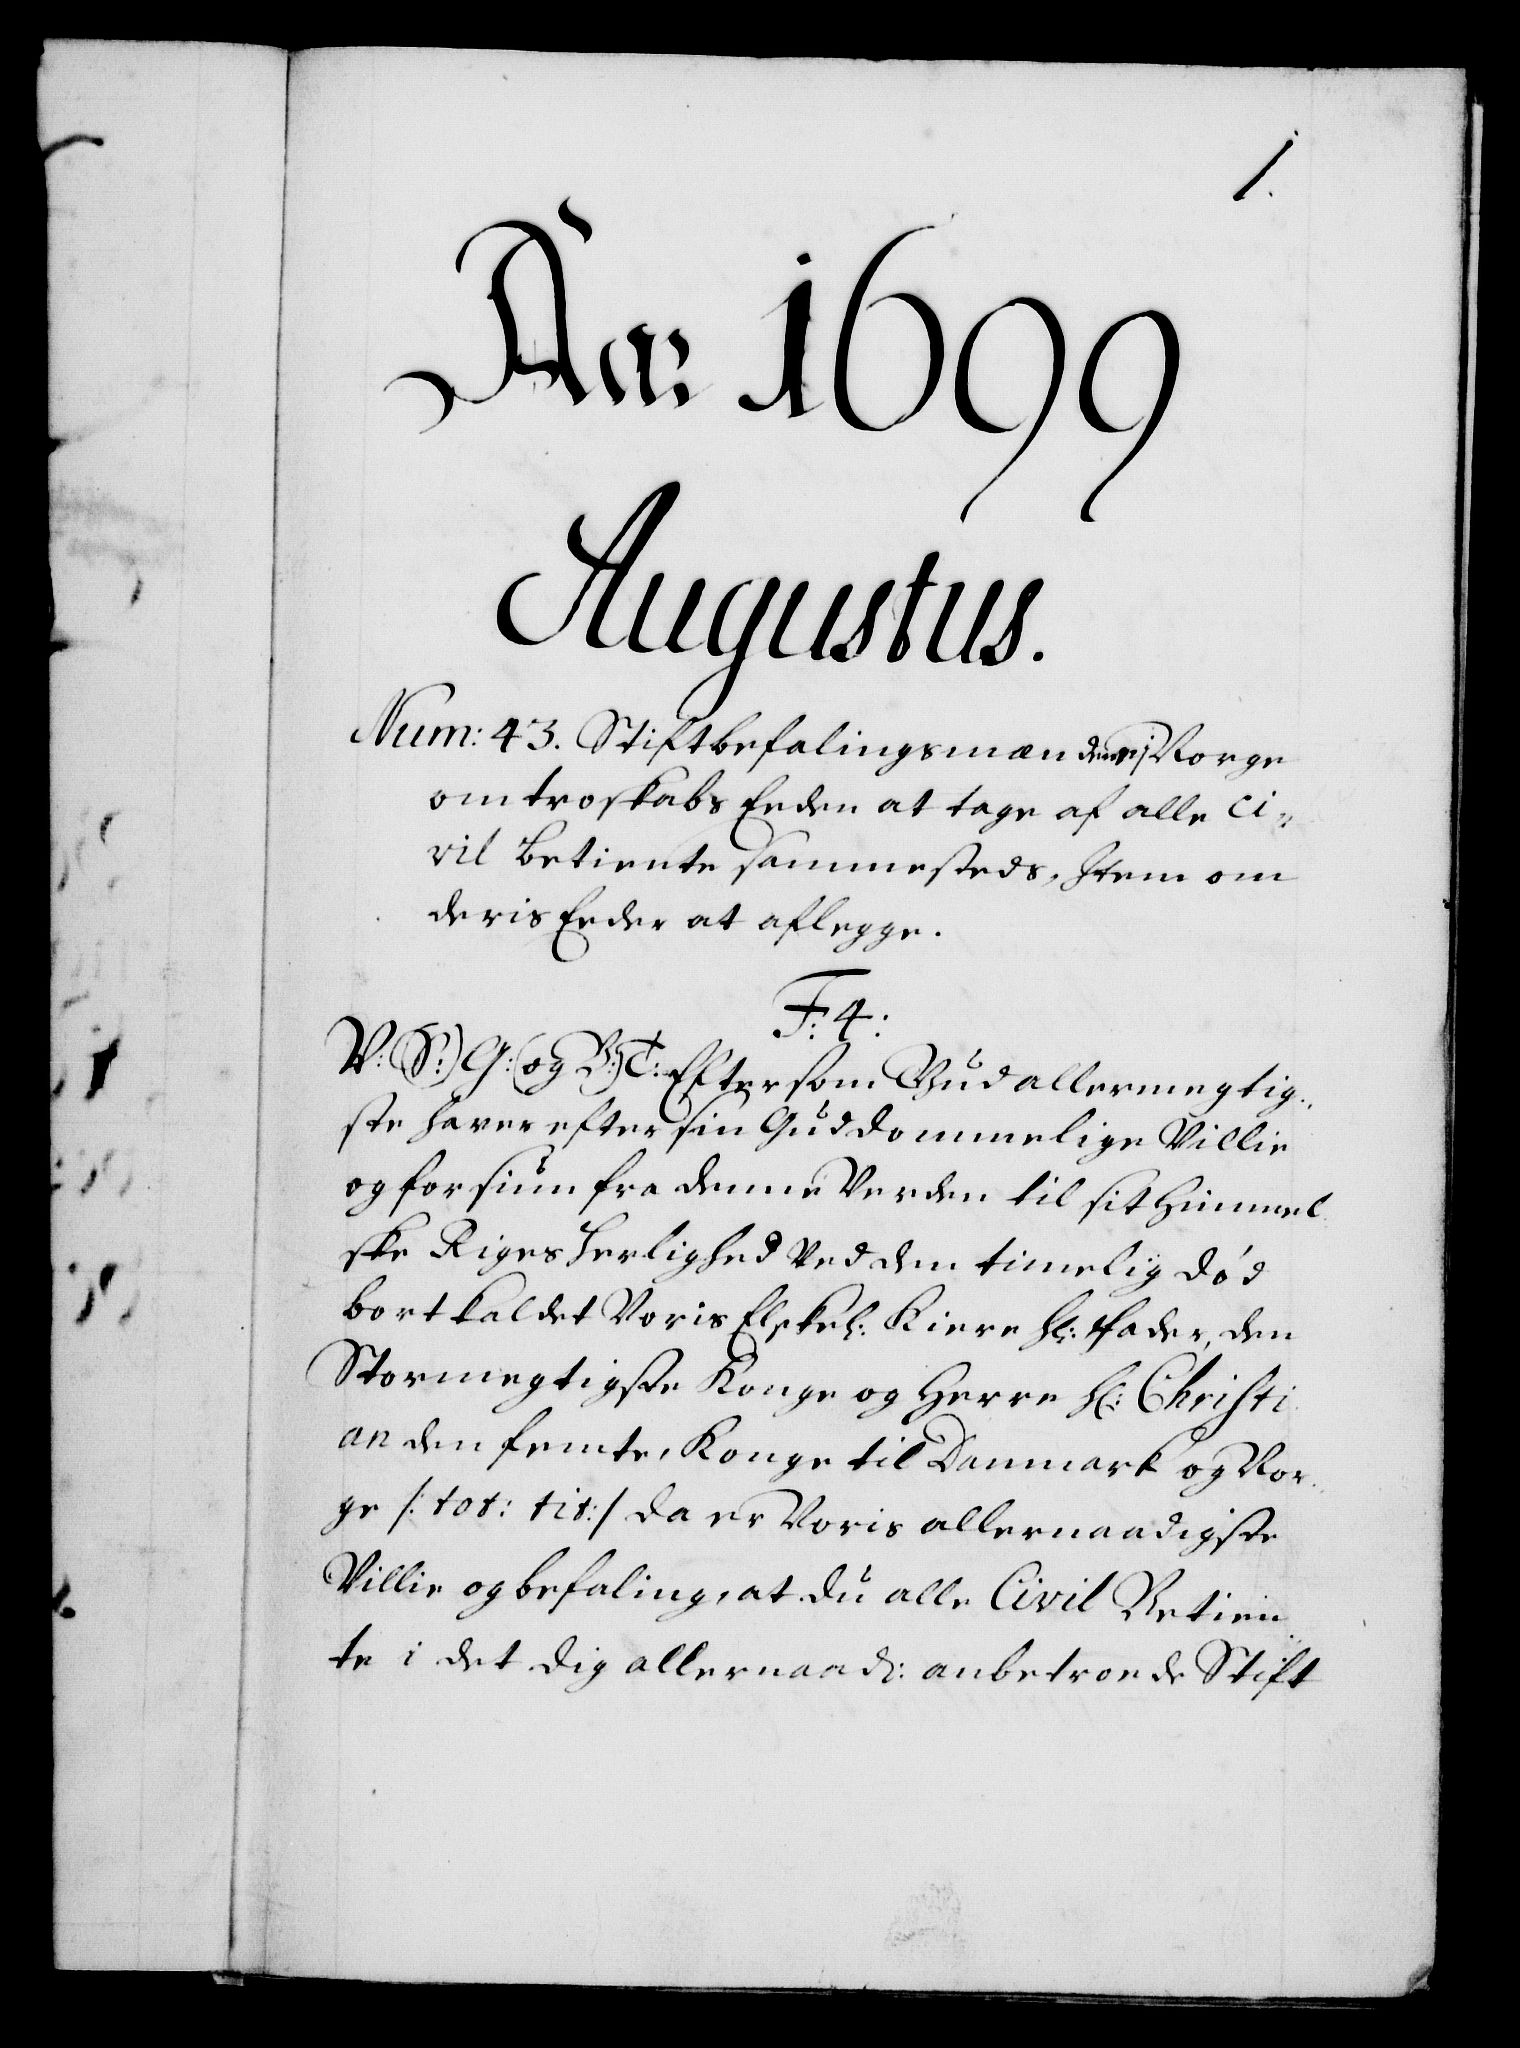 1.
Aar 1699
Augustus.
Num: 43. Stiftbefalingsmændene i Norge
om troskabs Eeden at tage af alle Ci-
vil betiente sammesteds, Item om
deris Eeder at aflegge.
F: 4:
V: (S:) G: (og B:) T: Eftersom Gud allermegtig-
ste haver efter sin Guddommelige Villie
og forsiun fra denne Verden til sit Himmel
ske Riges Herlighed ved den timelig død
bortkaldet Voris Elskel: Kiere Hr: Fader, den
Stormegtigste Konge og Herre Hr: Christi
an den femte, Konge til Danmark og Nor-
ge /: tot: tit: / da er Voris allernaadigste
Villie og befaling, at du alle Civil Betien
te i det dig allernaad: anbetroede Stift